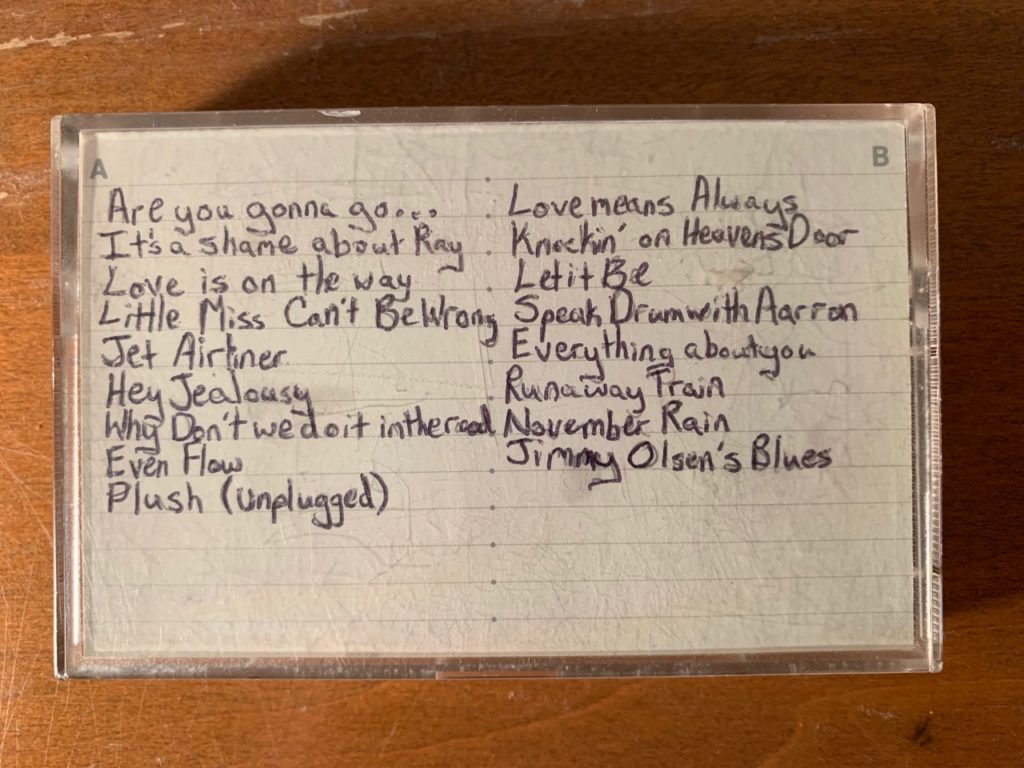 A
B
Are you gonna go...
It's a shame about Ray
Love is on the way
Little Miss Can't Be Wrong
Jet Airliner
Hey Jealousy
Why Don't we do it in the road
Even Flow
Plush (unplugged)
Love means Always
Knockin' on Heavens Door
Let it Be
Speak Drum with Aarron
Everything about you
Runaway Train
November Rain
Jimmy Olsen's Blues